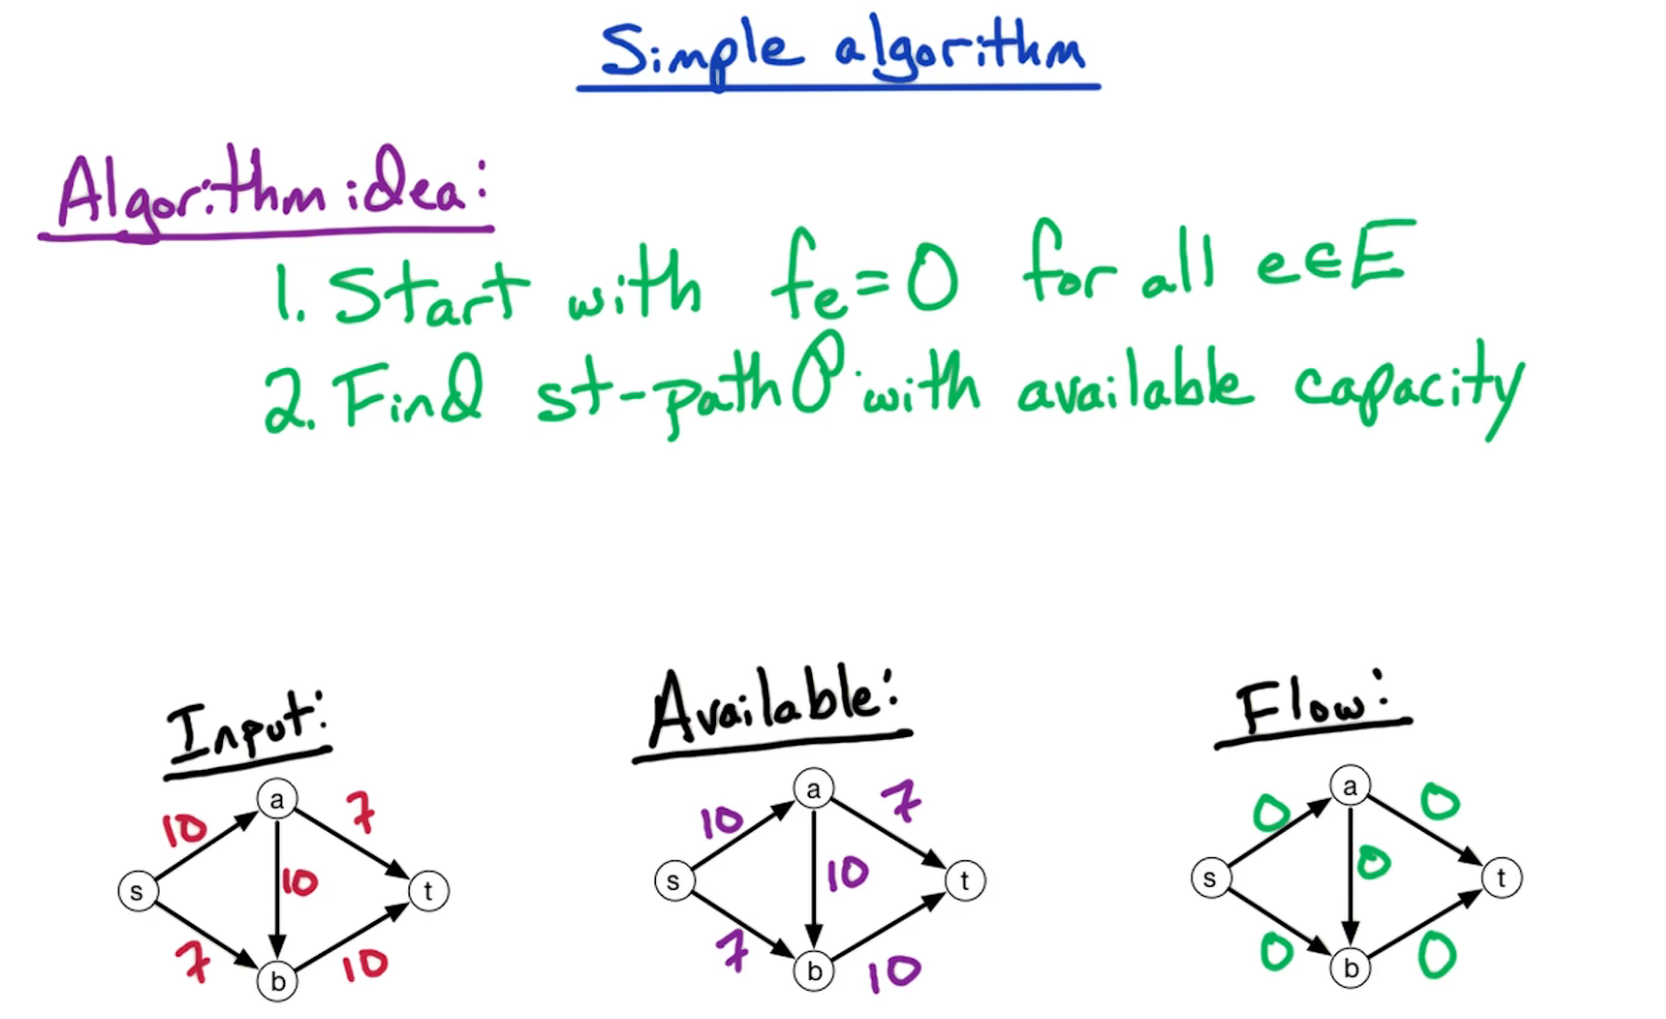 Simple algorithm
Algorithm idea:
1. Start with fe=0 for all e∈E
2. Find st-path P with available capacity
Input:
10
7
10
7
10
s
a
b
t
Available:
10
7
10
7
10
s
a
b
t
Flow:
0
0
0
0
0
s
a
b
t